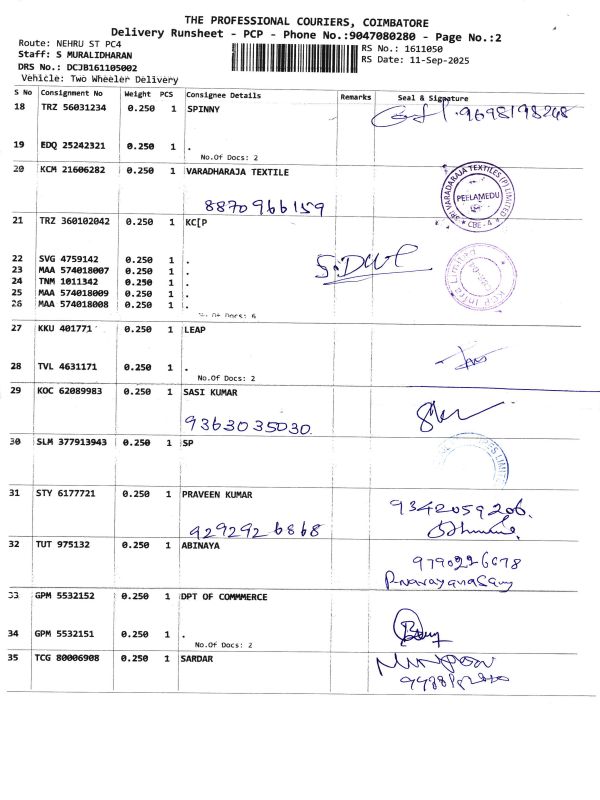 THE PROFESSIONAL COURIERS, COIMBATORE
Delivery Runsheet - PCP - Phone No.:9047080280 - Page No.:2
Route: NEHRU ST PC4
RS No.: 1611050
Staff: S MURALIDHARAN
RS Date: 11-Sep-2025
DRS No.: DCJB161105002
Vehicle: Two Wheeler Delivery
S No Consignment No Weight PCS Consignee Details Remarks Seal & Signature
18 TRZ 56031234 0.250 1 SPINNY
9698198248
19 EDQ 25242321 0.250 1 .
No.Of Docs: 2
20 KCM 21606282 0.250 1 VARADHARAJA TEXTILE
8870966159
SRI VARADARAJA TEXTILES (P) LIMITED
PEELAMEDU
CBE - 4
21 TRZ 360102042 0.250 1 KC[P
22 SVG 4759142 0.250 1 .
23 MAA 574018007 0.250 1 .
24 TNM 1011342 0.250 1 .
25 MAA 574018009 0.250 1 .
26 MAA 574018008 0.250 1 .
No.Of Docs: 6
KCP Infra Limited
27 KKU 401771 0.250 1 LEAP
28 TVL 4631171 0.250 1 .
No.Of Docs: 2
29 KOC 62089983 0.250 1 SASI KUMAR
9363035030.
30 SLM 377913943 0.250 1 SP
31 STY 6177721 0.250 1 PRAVEEN KUMAR
9342059206.
9292926868
32 TUT 975132 0.250 1 ABINAYA
9790226678
P. Narayanasamy
33 GPM 5532152 0.250 1 DPT OF COMMMERCE
34 GPM 5532151 0.250 1 .
No.Of Docs: 2
35 TCG 80006908 0.250 1 SARDAR